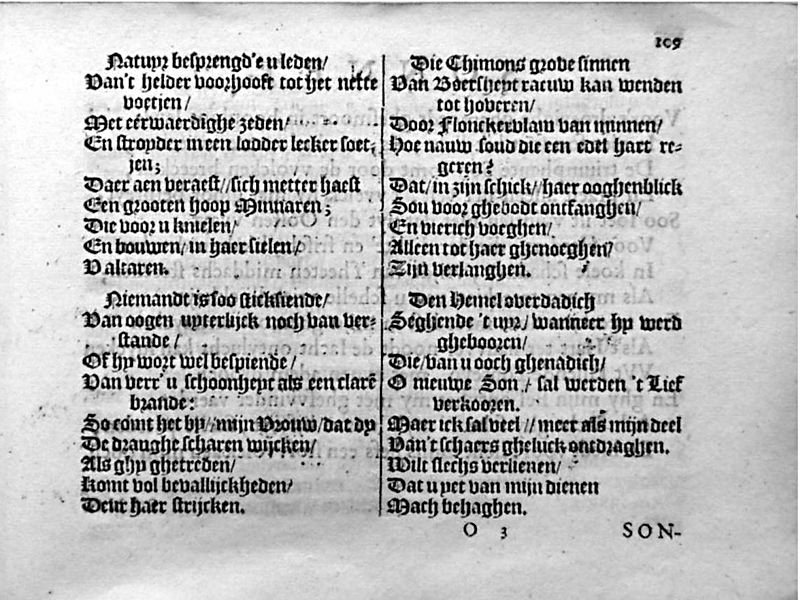 109
Natuyr besprengd'e u leden/
Van't helder voorhooft tot het nette
voetjen/
Met eérwaerdighe zeden/
En stroyder in een lodder lecker soet-
jen;
Daer aen veraest//sich metter haest
Een grooten hoop Minnaren;
Die voor u knielen/
En bouwen/in haer sielen/
V altaren.
Niemandt is soo sticksiende/
Van oogen uyterlijck noch van ver-
stande/
Of hy wort wel bespiende/
Van verr' u schoonheyt als een clare
brande:
So comt het by//mijn Vrouw/dat dy
De draughe scharen wijcken/
Als ghy ghetreden/
Komt vol bevallijckheden/
Deur haer strijcken.
Die Chimons grove sinnen
Van Boersheyt raeuw kan wenden
tot hoveren/
Door flonckervlaw van minnen/
Hoe nauw soud die een edel hart re-
geren?
Dat/in zijn schick//haer ooghenblick
Sou voor ghebodt ontfanghen/
En vierich voeghen/
Alleen tot haer ghenoeghen/
Zijn verlanghen.
Den Hemel overdadich
Séghende 't uyr/wanneer hy werd
ghebooren/
Die/van u ooch ghenadich/
O nieuwe Son/sal werden 't Lief
verkooren.
Maer ick sal veel//meer als mijn deel
Van't schaers gheluck ontdraghen.
Wilt slechs verlienen/
Dat u yet van mijn dienen
Mach behaghen.
O 3
SON-